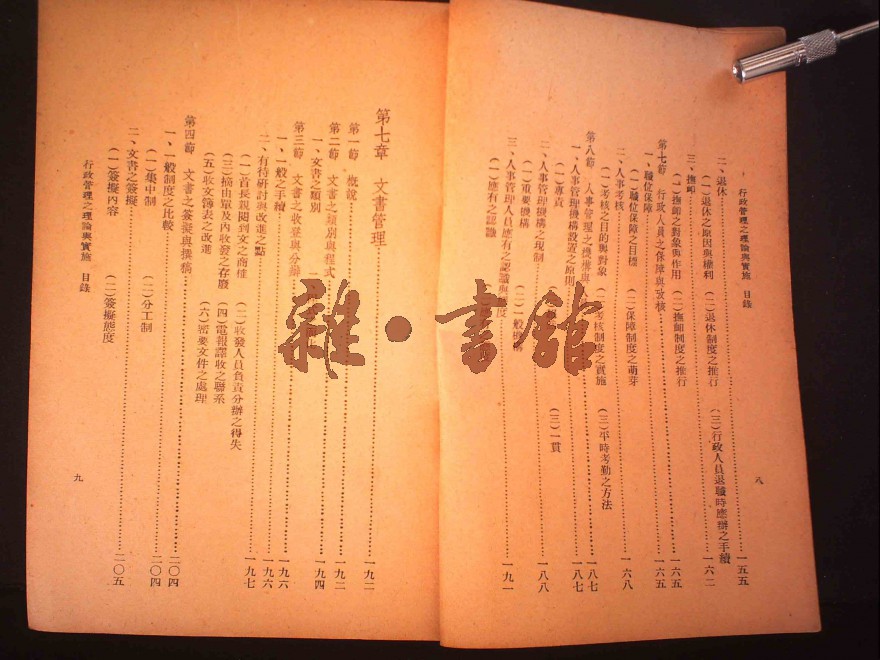 行政管理之理論與實施 目錄
二、退休……一五五
(一)退休之原因與權利 (二)退休制度之推行 (三)行政人員退職時應辦之手續
三、撫卹……一六二
(一)撫卹之對象與作用 (二)撫卹制度之推行
第七節 行政人員之保障與考核……一六五
一、職位保障……一六五
(一)職位保障之目標 (二)保障制度之萌芽
二、人事考核……一六八
(一)考核之目的與對象 (二)考核制度之實施 (三)平時考勤之方法
第八節 人事管理之機構與……一八七
一、人事管理機構設置之原則……一八七
(一)專責 (三)一貫
二、人事管理機構之現制……一八八
(一)重要機構 (二)一般機構
三、人事管理人員應有之認識與態度……一九一
(一)應有之認識
八
第七章 文書管理……一九二
第一節 概說……一九二
第二節 文書之類別與程式……一九四
一、文書之類別
第三節 文書之收發與分辦……一九六
一、一般之手續……一九六
二、有待研討與改進之點……一九七
(一)首長親閱到文之商榷 (二)收發人員負責分辦之得失
(三)摘由單及內收發之存廢 (四)電報譯收之聯系
(五)收文簿表之改進 (六)密要文件之處理
第四節 文書之簽擬與撰稿……二〇四
一、一般制度之比較……二〇四
(一)集中制 (二)分工制
二、文書之簽擬……二〇五
(一)簽擬內容 (二)簽擬態度
行政管理之理論與實施 目錄
九
雜·書館